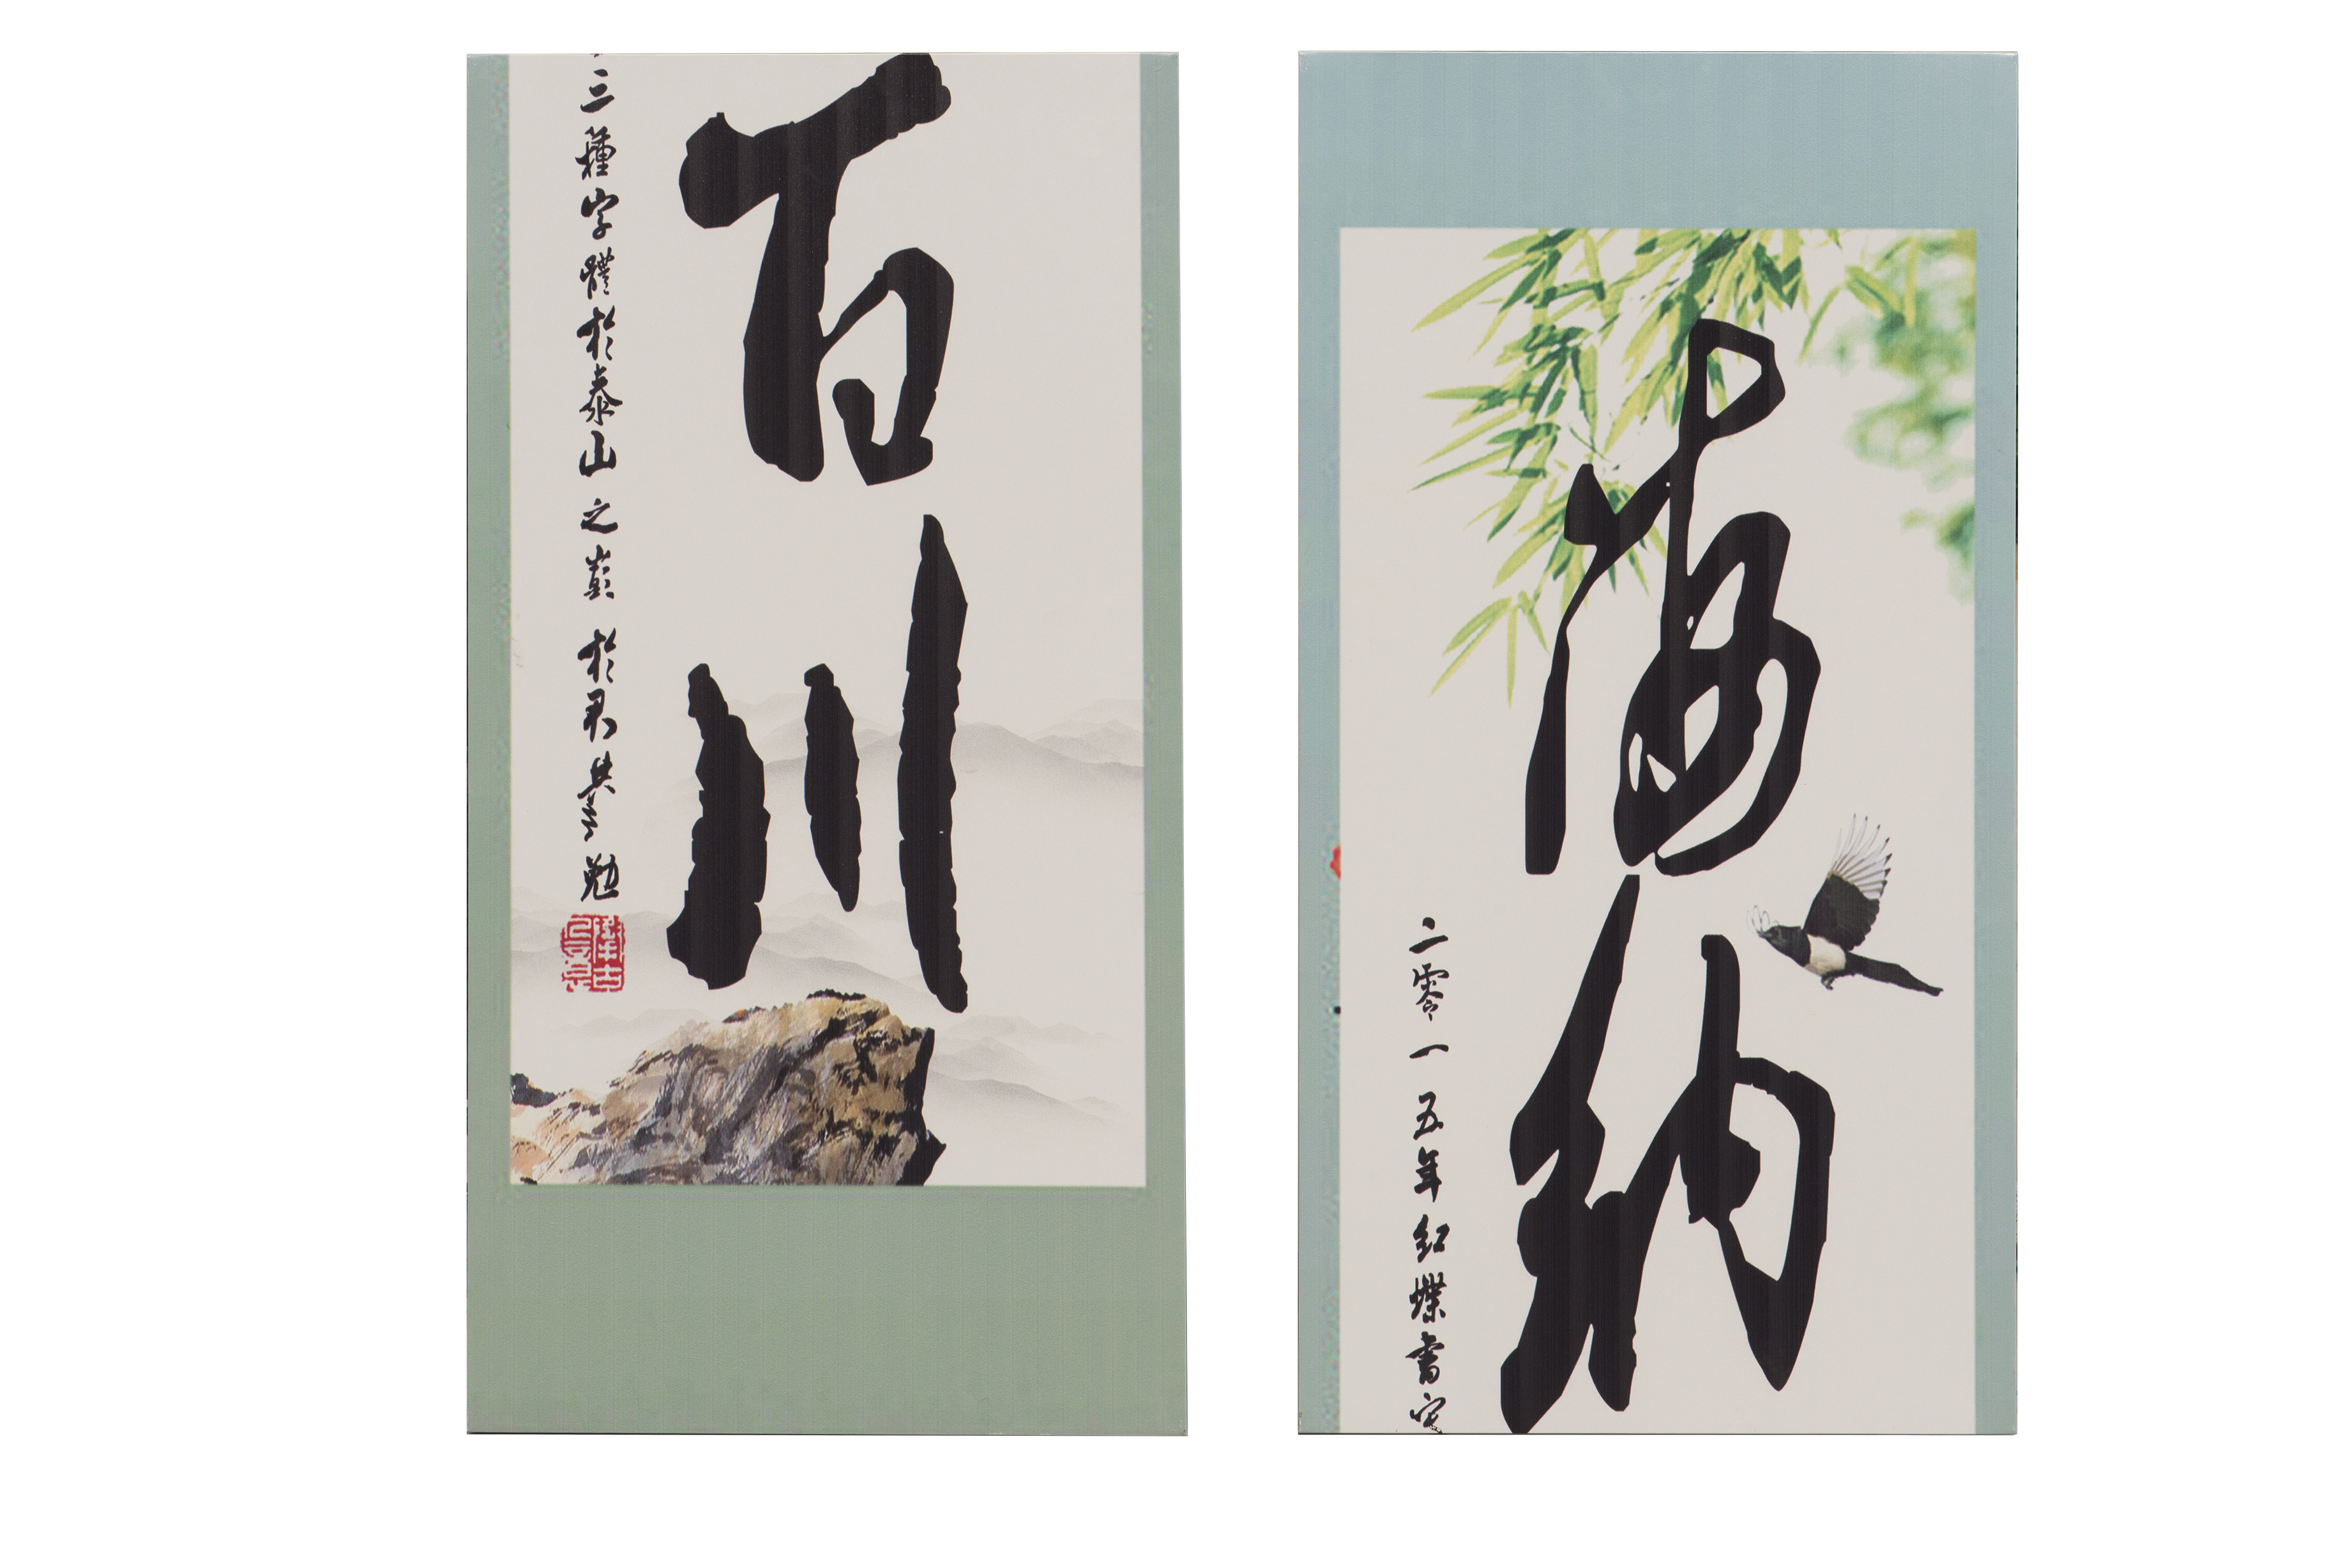 海納
二零一五年红蝶書
百川
三種字體於泰山之巔 於君共勉